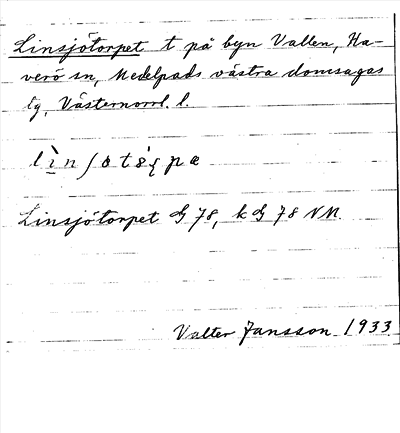 Linsjötorpet t på byn Vallen, Ha-
verö sn, Medelpads västra domsagas
tg, Västernorrl. l.
Linsjötorpet G 78, k G 78 NM.
Valter Jansson 1933